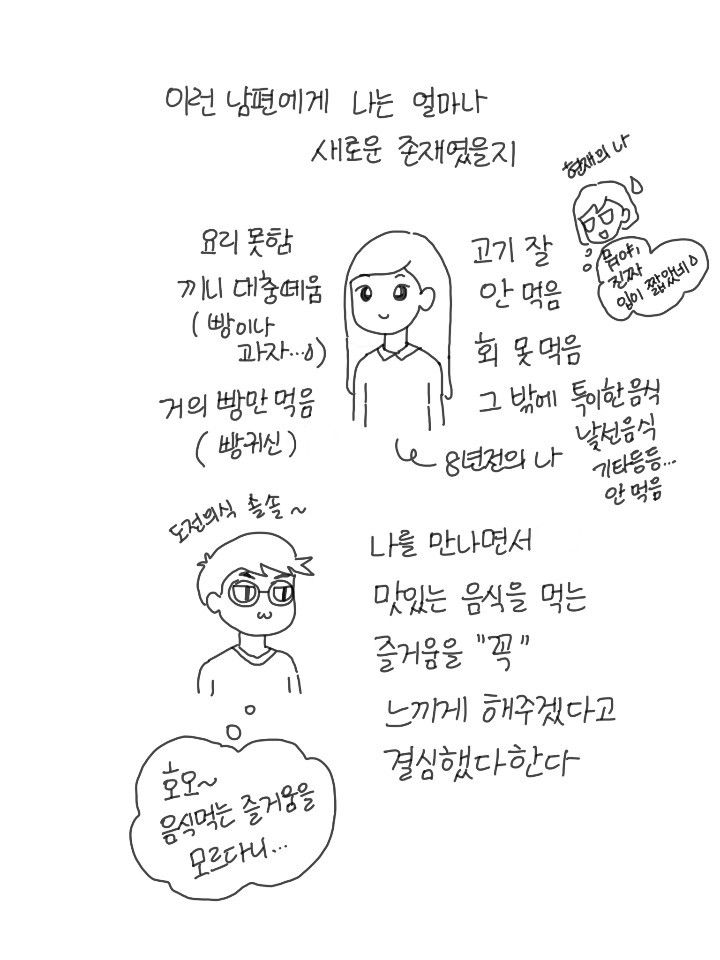 이런 남편에게 나는 얼마나
새로운 존재였을지
현재의 나
뭐야,
진짜
입이 짧았네
요리 못함
끼니 대충떼움
(빵이나
과자...)
거의 빵만 먹음
(빵귀신)
고기 잘
안 먹음
회 못 먹음
그 밖에 특이한 음식
낯선음식
기타등등...
안 먹음
8년전의 나
도전의식 솔솔~
나를 만나면서
맛있는 음식을 먹는
즐거움을 "꼭"
느끼게 해주겠다고
결심했다한다
호오~
음식먹는 즐거움을
모르다니...